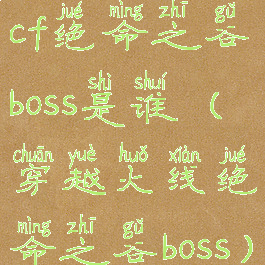 jué mìng zhī gǔ
cf绝命之谷
shì shuí
boss是谁（
chuān yuè huǒ xiàn jué
穿越火线绝
mìng zhī gǔ
命之谷boss）